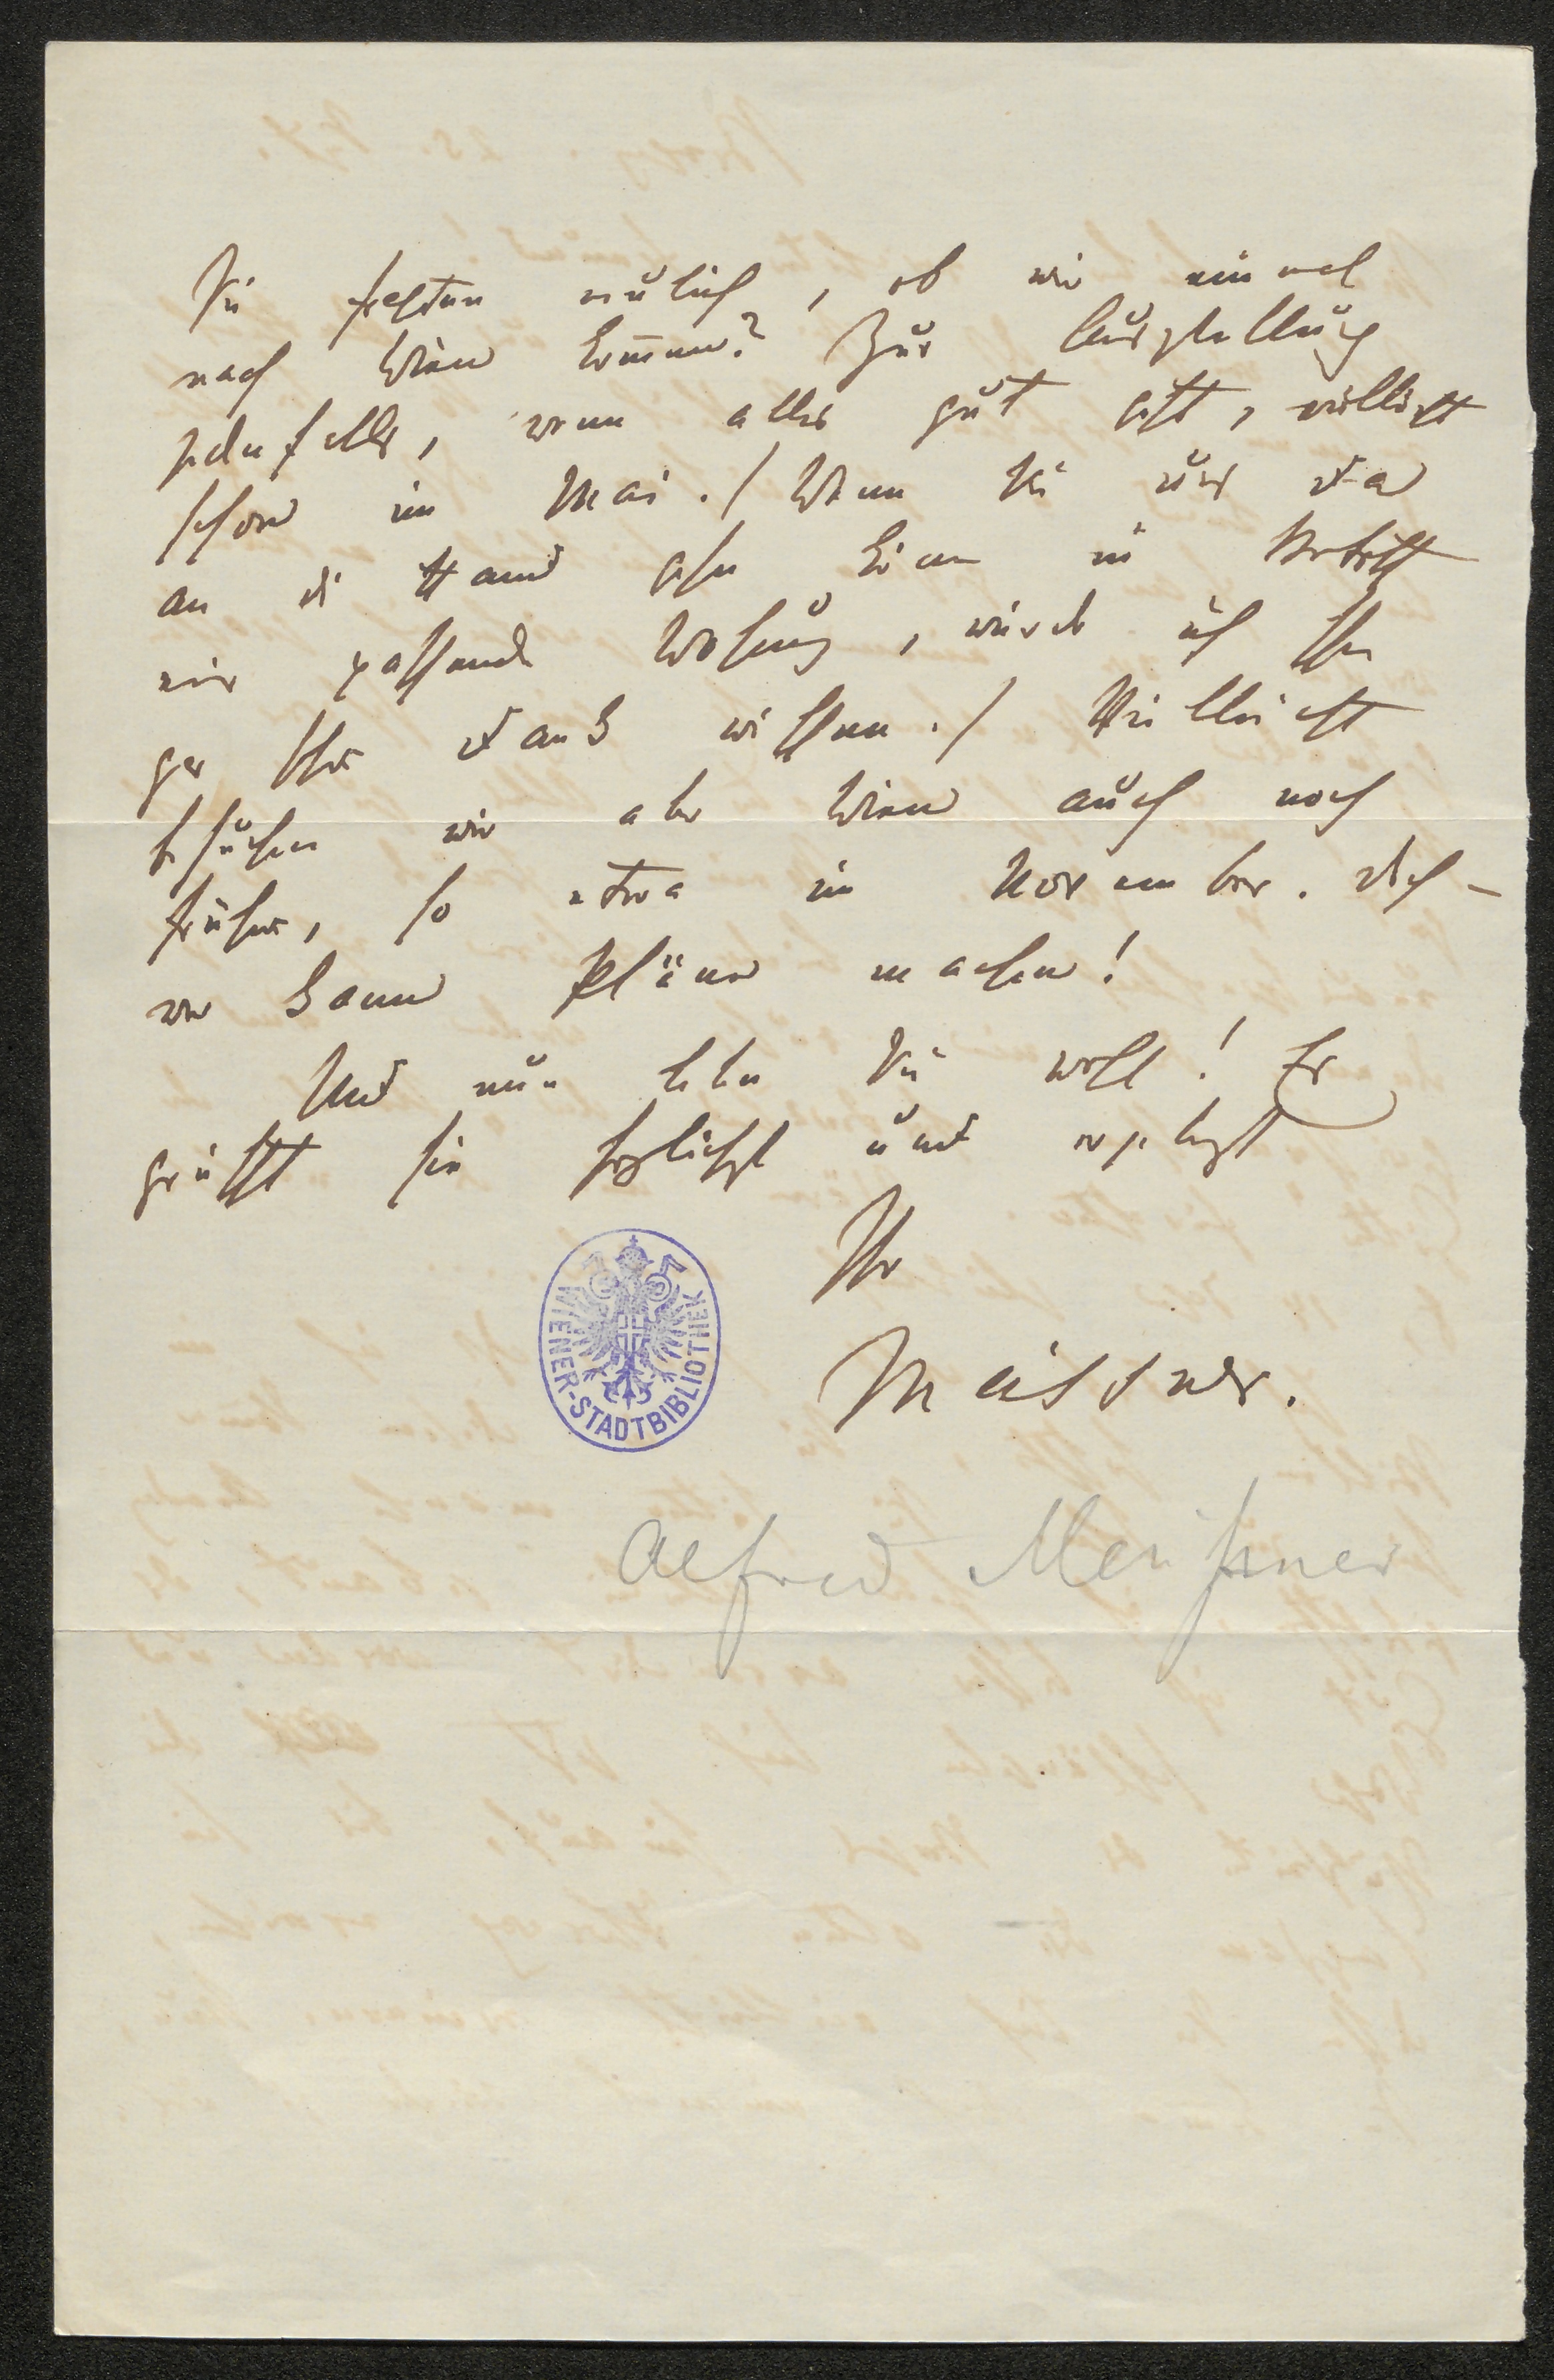 Sie fragten neulich, ob wir einmal
nach Wien kom̅en? Zur Ausstellung
jedenfalls, wenn alles gut geht, vielleicht
schon im Mai. / Wenn Sie uns da
an die Hand gehen können in Betreff
einer passenden Wohnung, würde ich Ihnen
gar sehr Dank wissen. / Vielleicht
besuchen wir aber Wien auch noch
früher, so etwa im November. Doch –
wer kann Pläne machen!
Und nun leben Sie wohl! Es
grüßt Sie herzlichst und ergebenst
Ihr
Meissner.
WIENER-STADTBIBLIOTHEK
Alfred Meißner